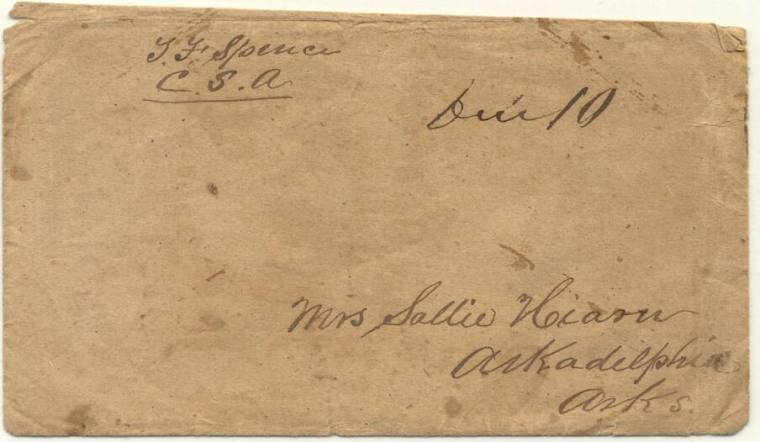 T. F. Spence
C. S. A
Due 10
Mrs Sallie Hearn
Arkadelphia
Arks.